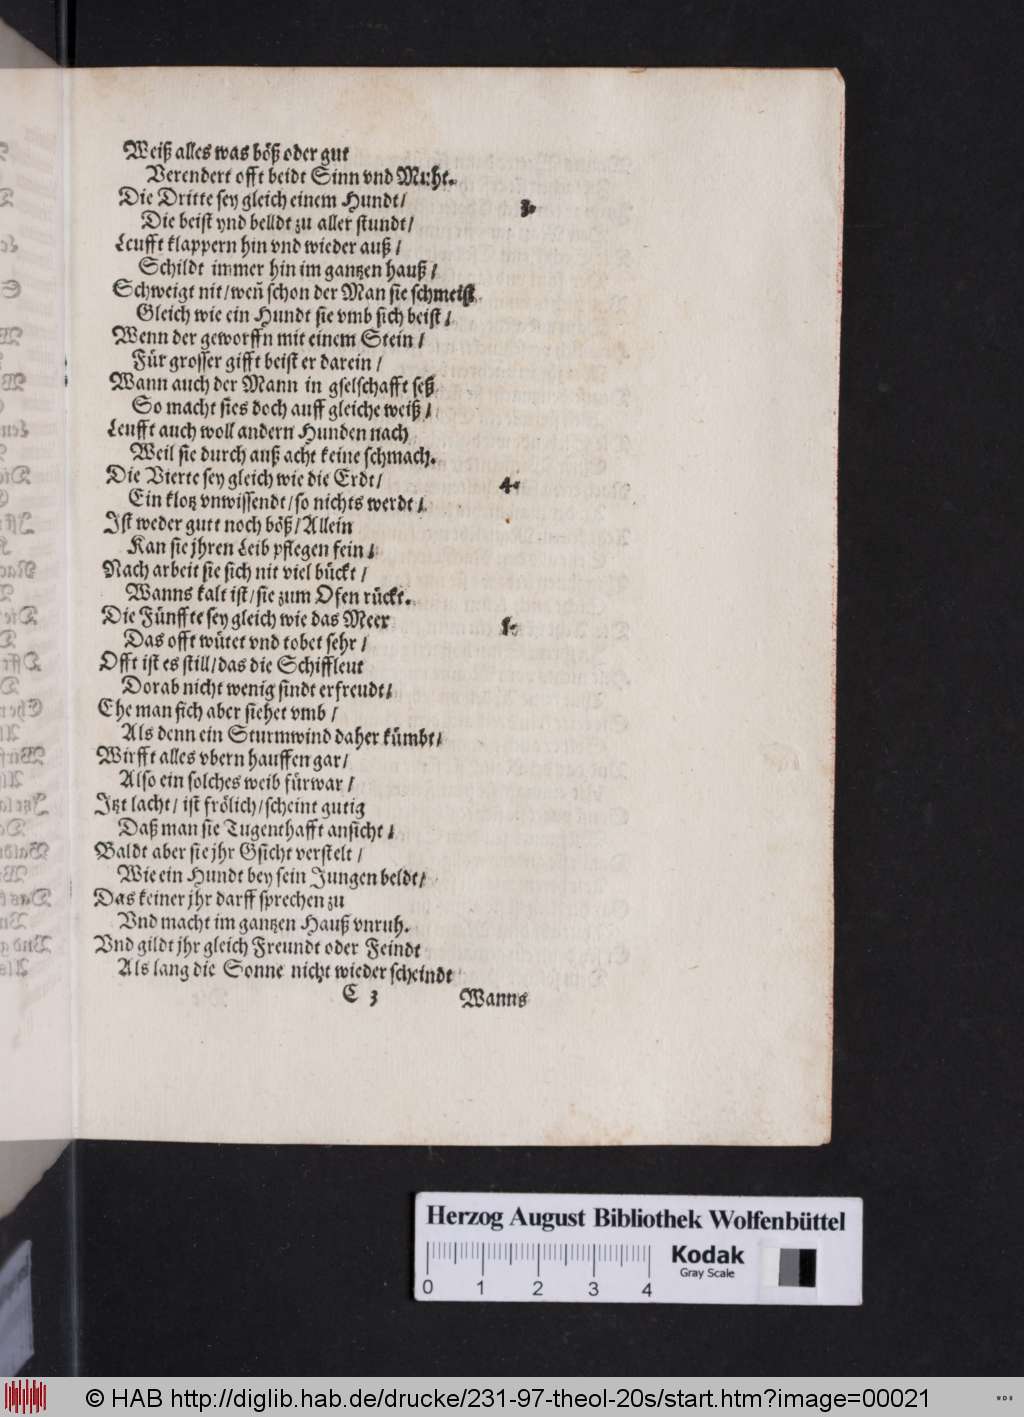 Weiß alles was böß oder gut
Verendert offt beidt Sinn vnd Muht.
Die Dritte sey gleich einem Hundt/
3.
Die beist vnd belldt zu aller stundt/
Leufft klappern hin vnd wieder auß/
Schildt immer hin im gantzen hauß/
Schweigt nit/ weñ schon der Man sie schmeist
Gleich wie ein Hundt sie vmb sich beist/
Wenn der geworffn mit einem Stein/
Für grosser gifft beist er darein/
Wann auch der Mann in gselschafft seß
So macht sies doch auff gleiche weiß/
Leufft auch woll andern Hunden nach
Weil sie durch auß acht keine schmach.
Die Vierte sey gleich wie die Erdt/
4.
Ein klotz vnwissendt/ so nichts werdt/
Ist weder gutt noch böß/ Allein
Kan sie jhren Leib pflegen fein/
Nach arbeit sie sich nit viel bückt/
Wanns kalt ist/ sie zum Ofen rückt.
Die Fünffte sey gleich wie das Meer
5.
Das offt wütet vnd tobet sehr/
Offt ist es still/ das die Schiffleut
Dorab nicht wenig sindt erfreudt/
Ehe man sich aber siehet vmb/
Als denn ein Sturmwind daher kümbt/
Wirfft alles vbern hauffen gar/
Also ein solches weib fürwar/
Itzt lacht/ ist frölich/ scheint gutig
Daß man sie Tugenthafft ansicht/
Baldt aber sie jhr Gsicht verstelt/
Wie ein Hundt bey sein Jungen beldt/
Das keiner jhr darff sprechen zu
Vnd macht im gantzen Hauß vnruh.
Vnd gildt jhr gleich Freundt oder Feindt
Als lang die Sonne nicht wieder scheindt
C 3 Wanns
Herzog August Bibliothek Wolfenbüttel
Kodak
Gray Scale
0 1 2 3 4
© HAB http://diglib.hab.de/drucke/231-97-theol-20s/start.htm?image=00021